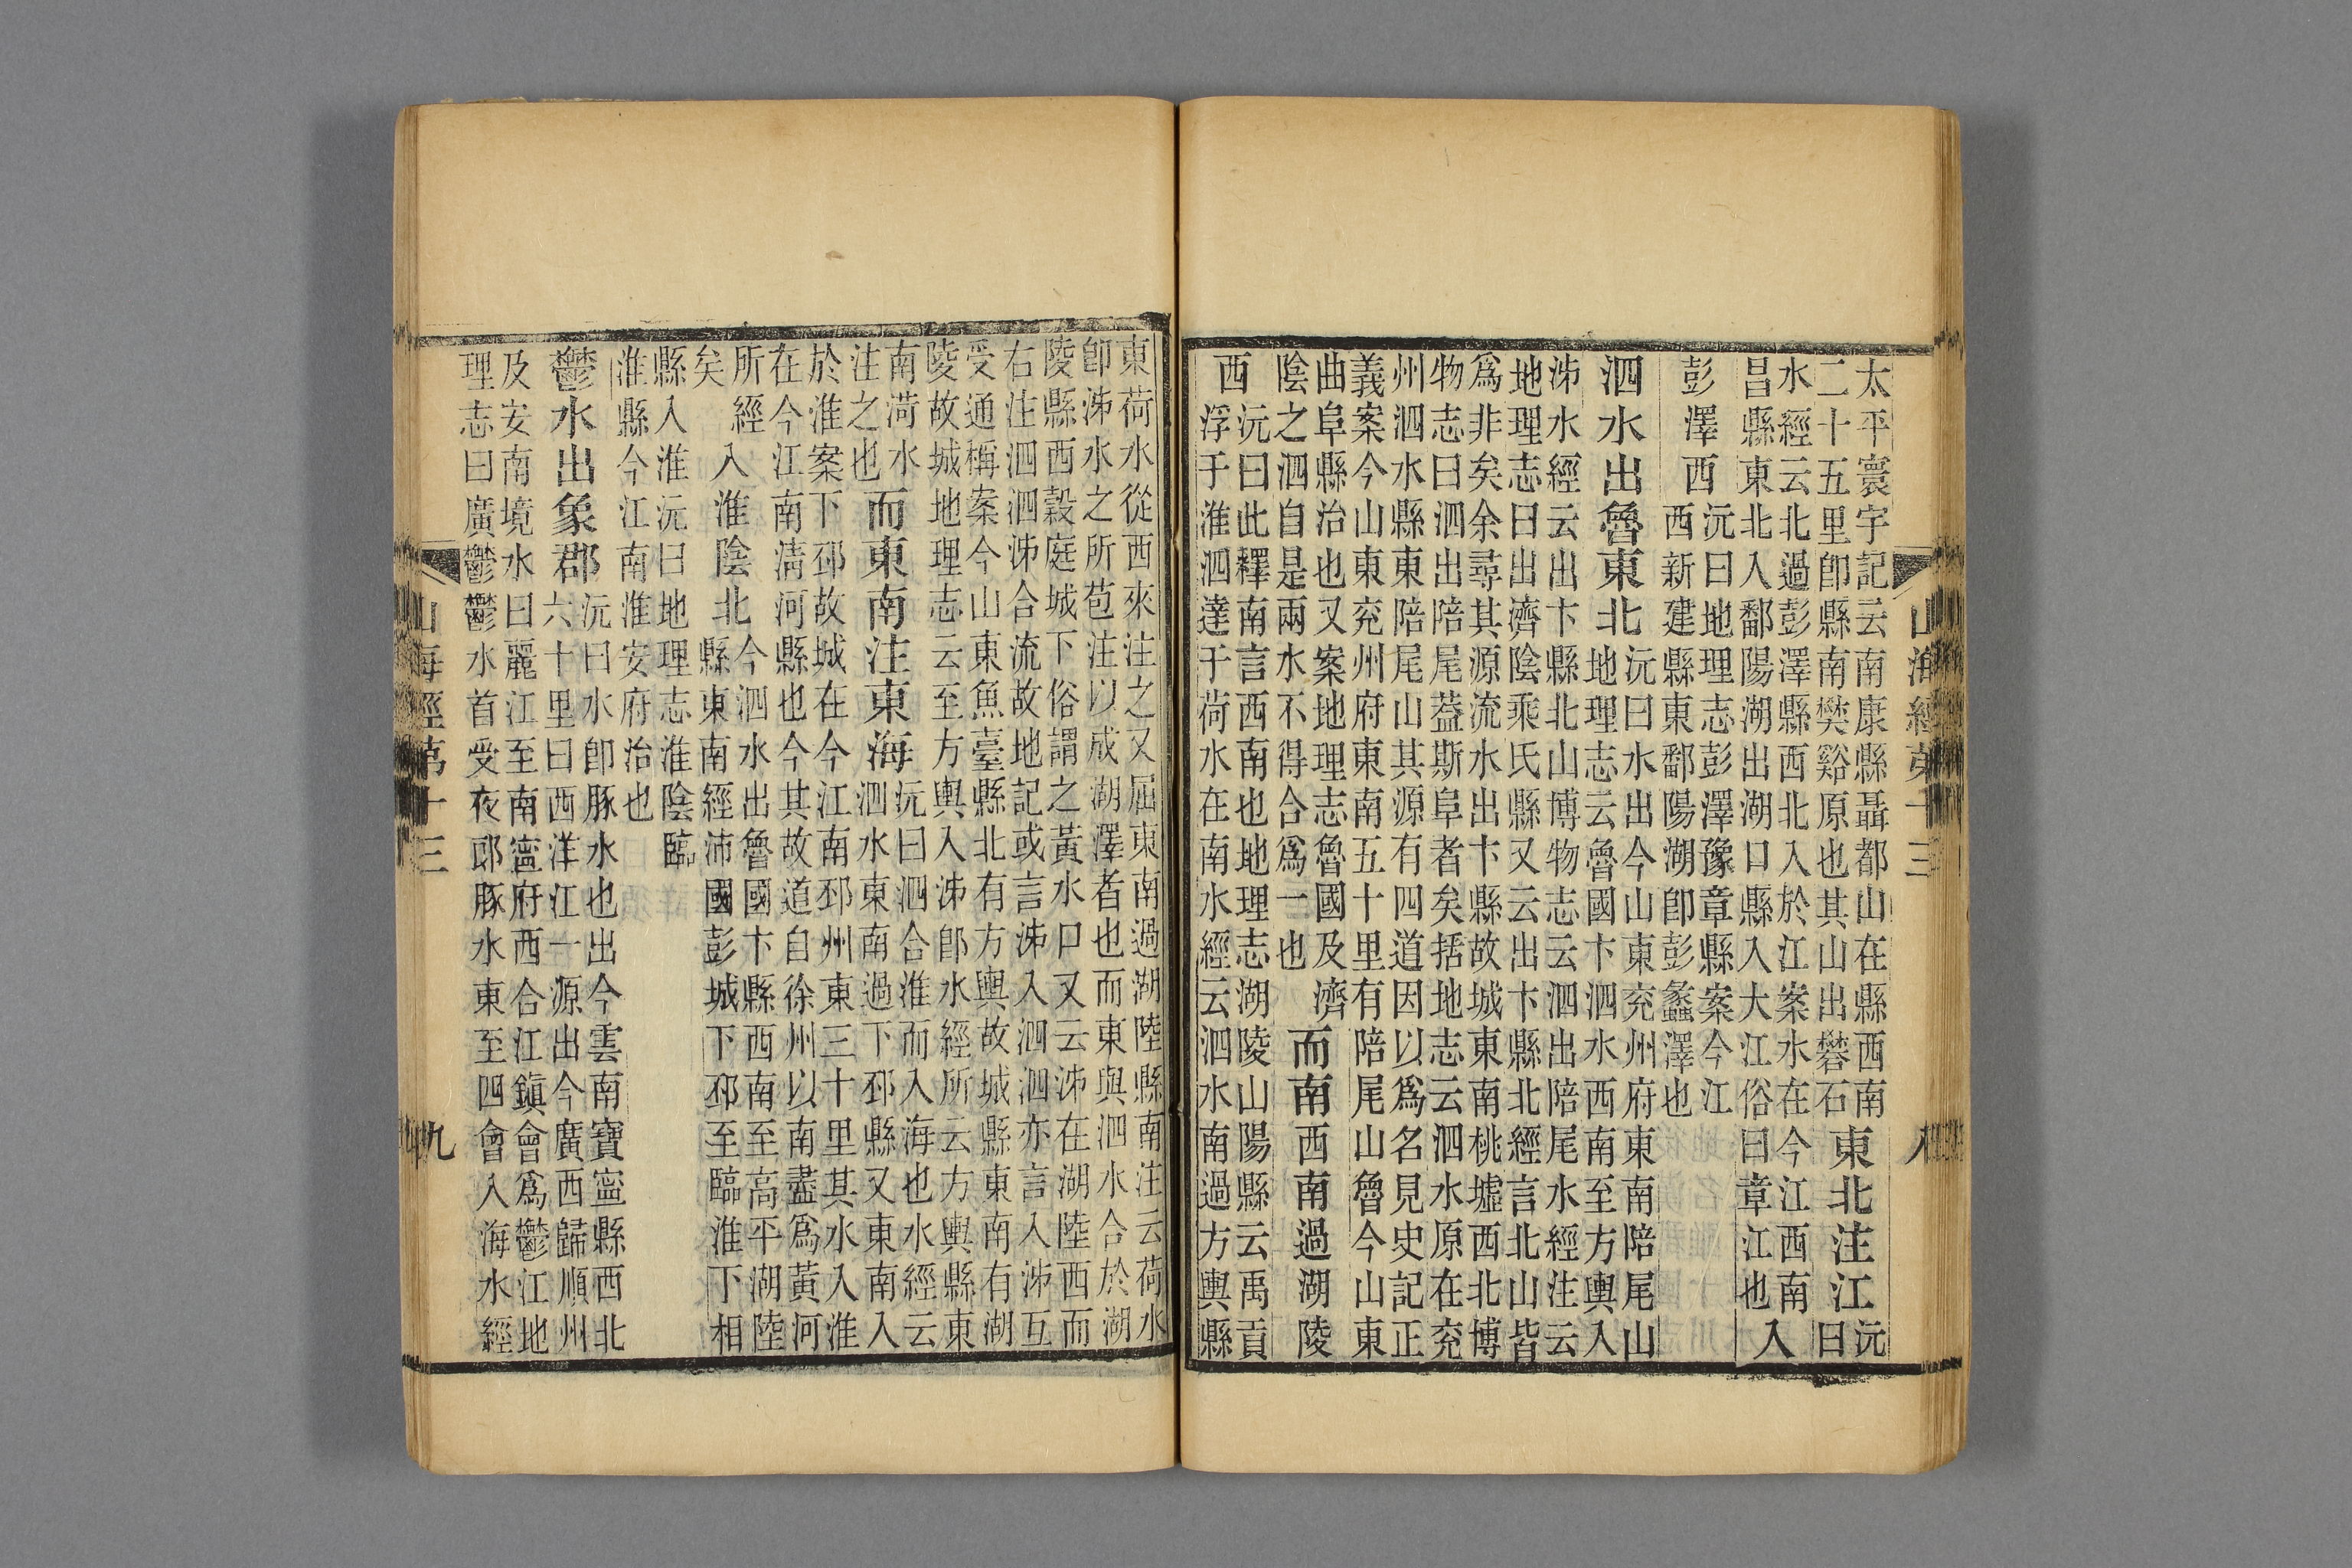 山海經第十三 八
太平寰宇記云南康縣聶都山在縣西南
二十五里卽縣南樊谿原也其山出礬石
東北注江
沅
曰
水經云北過彭澤縣西北入於江案水在今江西南
昌縣東北入鄱陽湖出湖口縣入大江俗曰章江也
入
彭澤西
沅曰地理志彭澤豫章縣案今江
西新建縣東鄱陽湖卽彭蠡澤也
泗水出魯東北
沅曰水出今山東兖州府東南陪尾山
地理志云魯國卞泗水西南至方輿入
泲水經云出卞縣北山博物志云泗出陪尾水經注云
地理志曰出濟陰乘氏縣又云出卞縣北經言北山皆
爲非矣余尋其源流水出卞縣故城東南桃墟西北博
物志曰泗出陪尾葢斯阜者矣括地志云泗水原在兖
州泗水縣東陪尾山其源有四道因以爲名見史記正
義案今山東兖州府東南五十里有陪尾山魯今山東
曲阜縣治也又案地理志魯國及濟
陰之泗自是兩水不得合爲一也
而南西南過湖陵
西
沅曰此釋南言西南也地理志湖陵山陽縣云禹貢
浮于淮泗達于荷水在南水經云泗水南過方輿縣
東荷水從西來注之又屈東南過湖陸縣南注云荷水
卽泲水之所苞注以成湖澤者也而東與泗水合於湖
陵縣西榖庭城下俗謂之黃水口又云泲在湖陸西而
右注泗泗泲合流故地記或言泲入泗泗亦言入泲互
受通稱案今山東魚臺縣北有方輿故城縣東南有湖
陵故城地理志云至方輿入泲卽水經所云方輿縣東
南荷水
注之也
而東南注東海
沅曰泗合淮而入海也水經云
泗水東南過下邳縣又東南入
於淮案下邳故城在今江南邳州東三十里其水入淮
在今江南淸河縣也今其故道自徐州以南盡爲黃河
所經
矣
入淮陰北
今泗水出魯國卞縣西南至高平湖陸
縣東南經沛國彭城下邳至臨淮下相
縣入淮沅曰地理志淮陰臨
淮縣今江南淮安府治也
鬱水出象郡
沅曰水卽豚水也出今雲南寶寧縣西北
六十里曰西洋江一源出今廣西歸順州
及安南境水曰麗江至南寧府西合江鎮會爲鬱江地
理志曰廣鬱鬱水首受夜郎豚水東至四會入海水經
山海經第十三 九